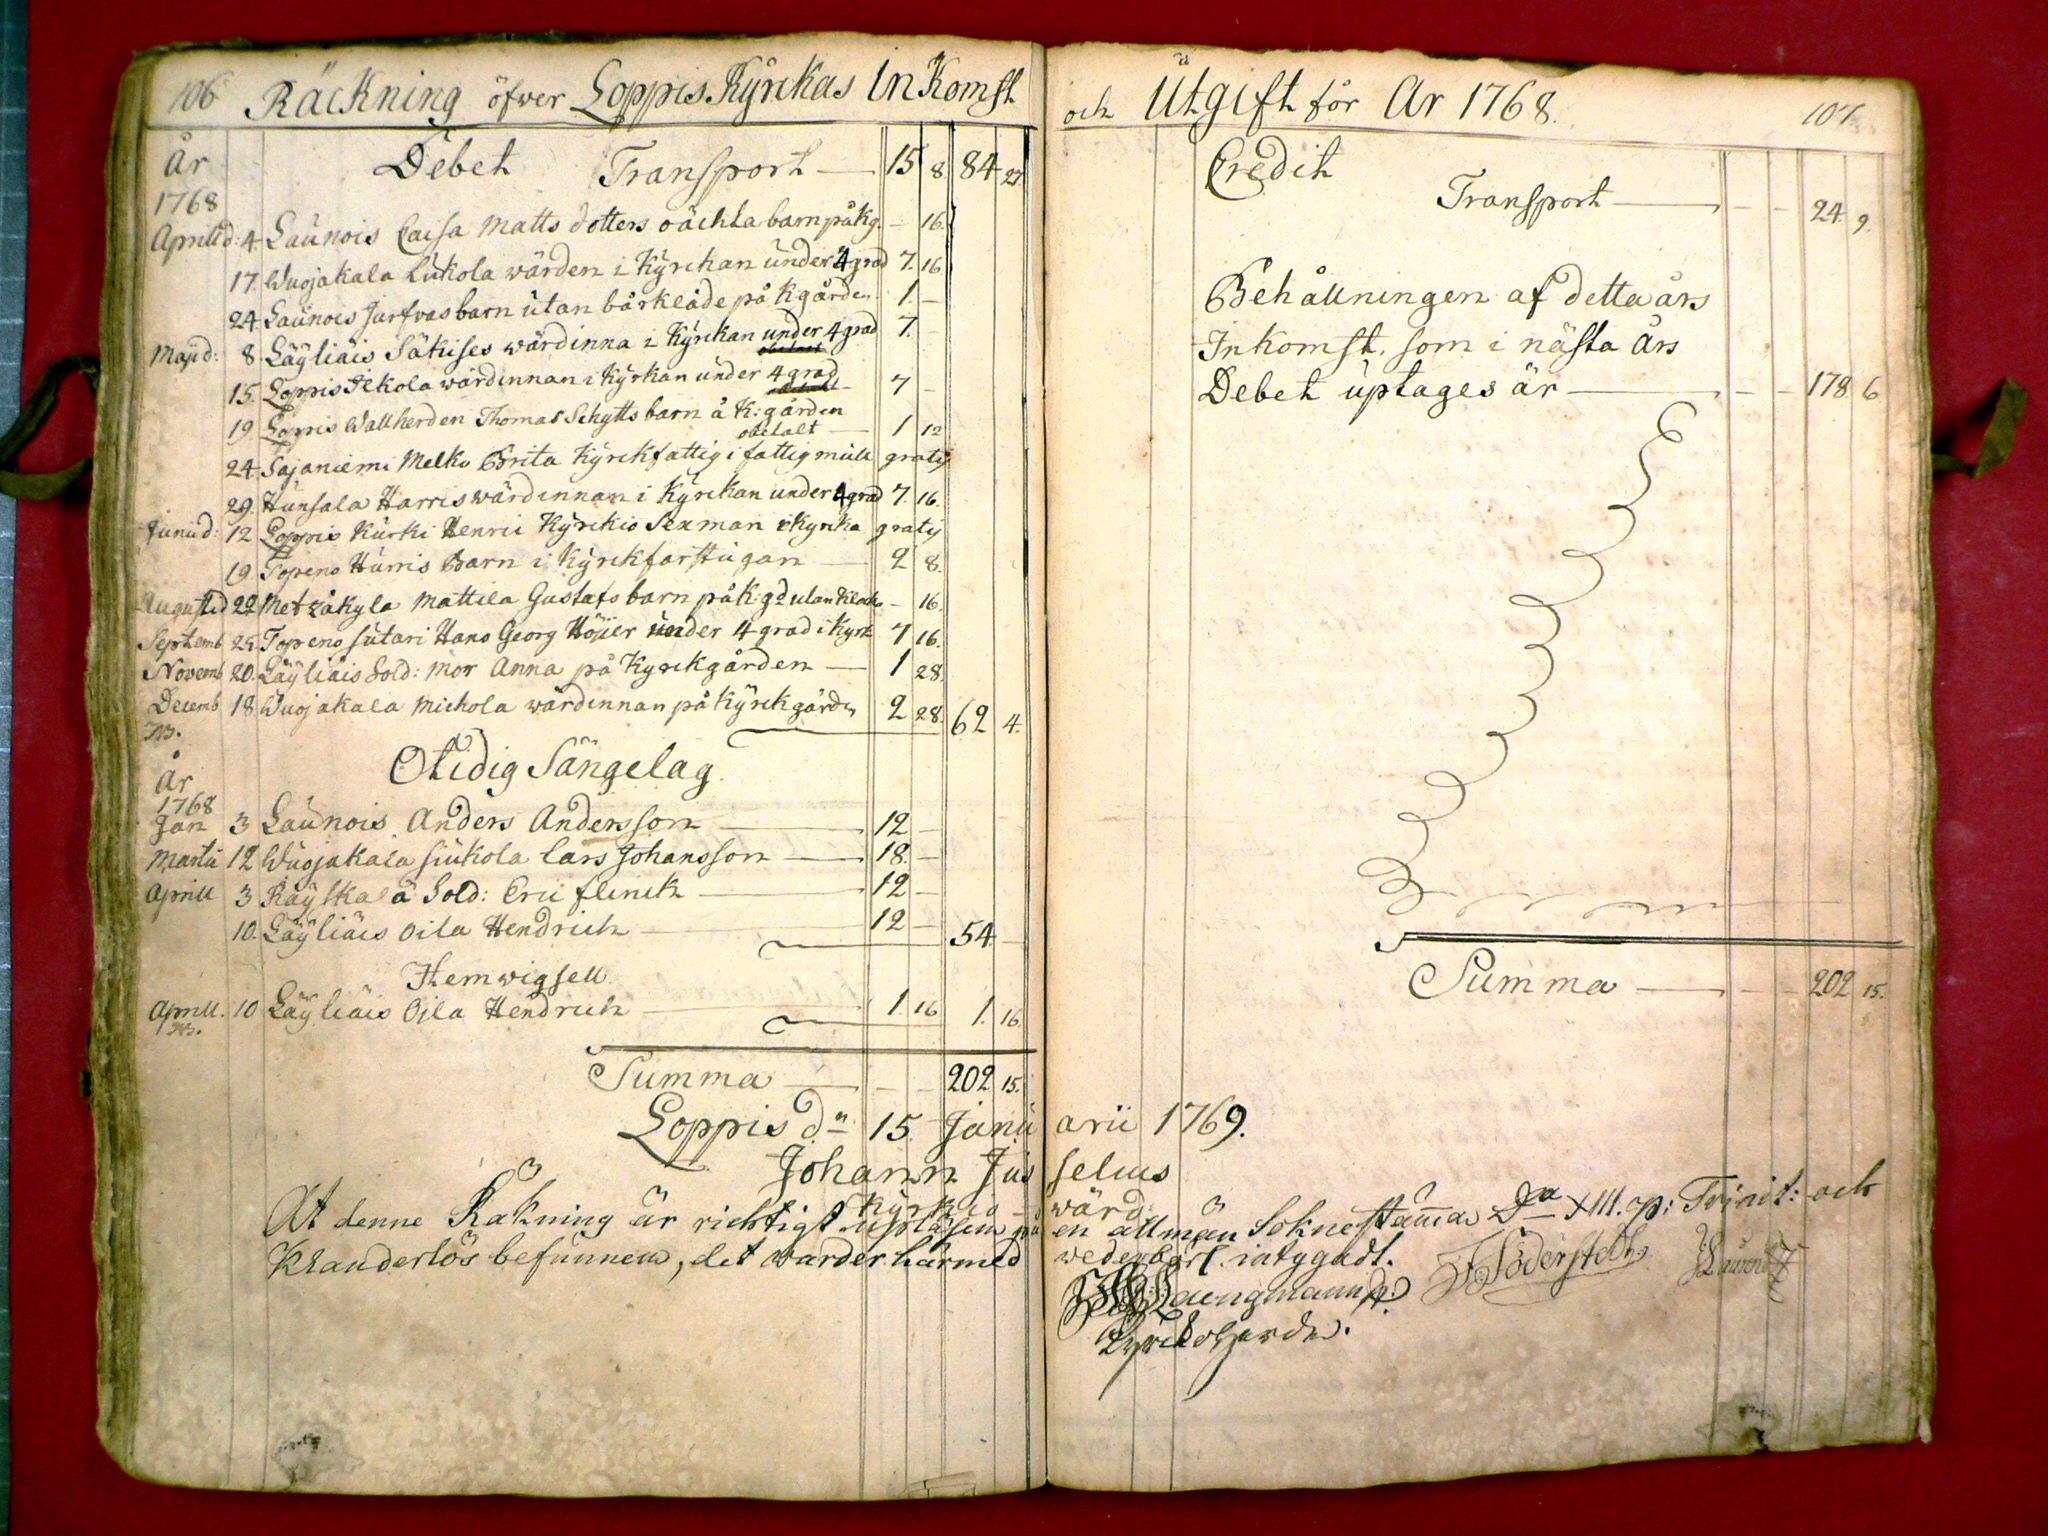 106 Räckning öfver Loppis Kyrckas Inkomst
År Debet Transport 15 8 84 27
1768
Aprilis d: 4 Launois Caisa Matts dotters oächta barn på Kg. - 16
17. Wuojakala Lukola wärden i Kyrckan under 4 grad 7. 16
24 Launois Jurfvas barn utan bårkläde på Kgården 1. -
Maji d: 8 Läyliäis Säkises wärdinna i Kyrckan under 4 grad 7. -
15. Loppis Ilkola wärdinnan i Kyrkan under 4 grad 7 -
19 Loppis Wallherden Thomas Schytts barn å K: gården
obetalt 1 12
24 Sajaniemi Melko Brita Kyrckfattig i fattig mull gratis
29. Hunsala Harris wärdinnan i Kyrckan under 4 grad 7. 16.
Junii d: 12 Loppis Kurki Henric Kyrckio Sexman i Kyrcka gratis
19. Topeno Hurris Barn i Kyrckfarstugan 2 8.
Augusti d 22 Metzäkylä Mattila Gustafs barn på K:gd utan Klock - 16.
Septemb 25. Topeno Sutari Hans Georg Höijer under 4 grad i Kyrk 7 16.
Novemb 20. Läyliäis Sold: Mor Anna på Kyrckgården 1 28.
Decemb 18 Wuojakala Mickola wärdinnan på Kyrckgården 2 28. 62 4.
Otidig Sängelag
År
1768
Jan 3 Launois Anders Andersson 12 -
Martii 12 Wuojakala Siukola Lars Johansson 18. -
Aprill 3 Räyskälä Sold: Eric Flinck 12 -
10. Läyliäis Oila Hendrich 12 - 54 -
Hemwigsell
Aprill. 10 Läyliäis Oila Hendrich 1. 16 1. 16.
Summa 202 15.
och Utgift för År 1768. 107
Credit
Transport - - 24 9.
Behållningen af detta års
Inkomst, som i nästa Års
Debet uptages är - - 178. 6
Summa - - 202 15.
Loppis dn 15. Januarii 1769.
Johann Juselius
Kyrckio wärd.
At denne Räkning är richtigt upläsen på en allmän Sokne stämma Dca XIII. p: Trinit: och
Klanderlös befunnen, det warder härmed wederbörl. intygadt.
Söderstedt
Laengmann
Kyrckoherde.